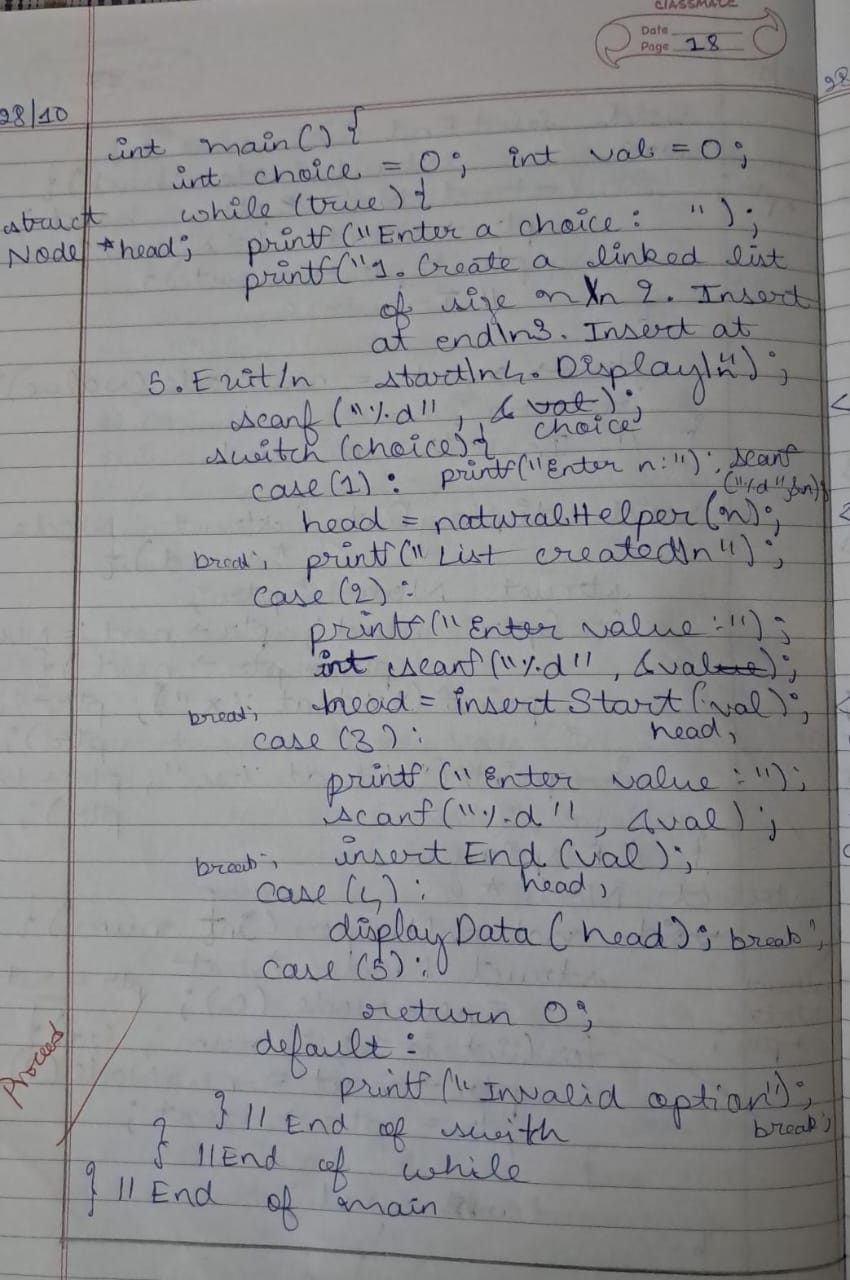 CLASSMATE
Date
Page 18
28/10
int main() {
int choice = 0; int val = 0;
struct while (true) {
Node *head; printf ("Enter a choice: ");
printf("1. Create a linked list
of size n \n 2. Insert
at end\n3. Insert at
5. Exit\n start\n4. Display\n");
scanf ("%d", & val);
choice
switch (choice) {
case (1): printf("Enter n:"); scanf
("%d",&n);
head = naturalHelper(n);
break; printf(" List created\n");
case (2):
printf("Enter value :");
int scanf("%d", &value);
break; head = insert Start (val);
case (3): head,
printf ("Enter value :");
scanf("%d", &val);
break; insert End (val);
case (4): head,
displayData (head); break;
case (5):
return 0;
default:
printf ("Invalid option");
} // End of swith break;
} // End of while
} // End of main
Proceed